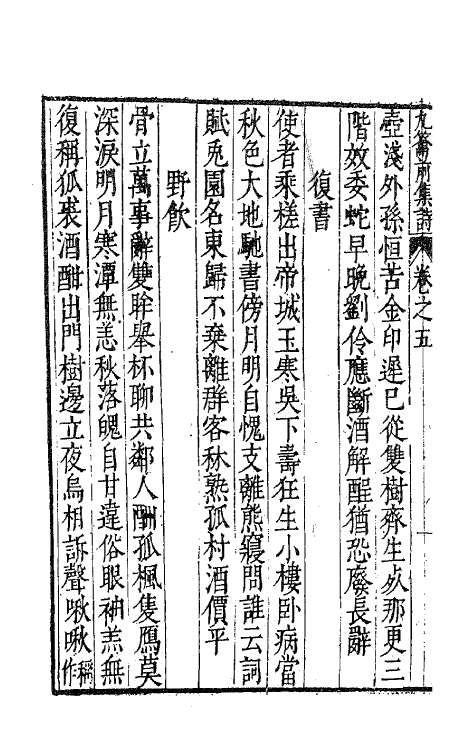 九籥前集詩 卷之五
壺淺外孫恒苦金印遲已從雙樹齊生㱕那更三
階效委蛇早晚劉伶應斷酒解酲猶恐廢長辭
復書
使者乘槎出帝城玉寒吳下壽狂生小樓卧病當
秋色大地馳書傍月明自愧支離熊寢問誰云詞
賦兎園名東歸不棄離群客秫熟孤村酒價平
野飲
骨立萬事辭雙眸舉杯聊共鄰人酬孤楓隻鴈莫
深淚明月寒潭無恙秋落魄自甘違俗眼袖羔無
復稱狐裘酒酣出門樹邊立夜烏相訴聲啾啾稱作